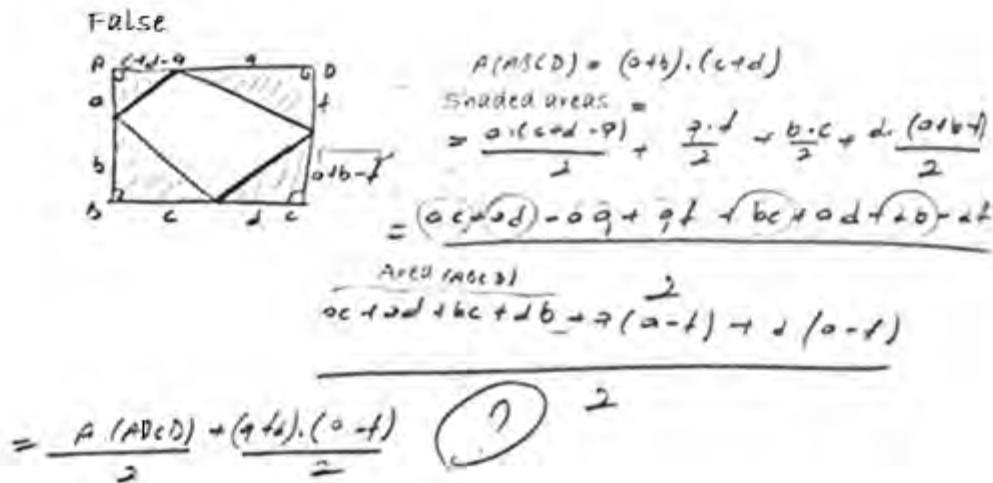 False
A c+d-q q D
a f
b a+b-f
B c d C
A(ABCD) = (a+b).(c+d)
Shaded areas =
= a.(c+d-q)/2 + q.f/2 + b.c/2 + d.(a+b-f)/2
= ac+ad-aq+qf+bc+ad+db-df
2
Area (ABCD)
ac+ad+bc+db+q(a-f)+d(a-f)
2
= A(ABCD)/2 + (q+d).(a-f)/2 ?